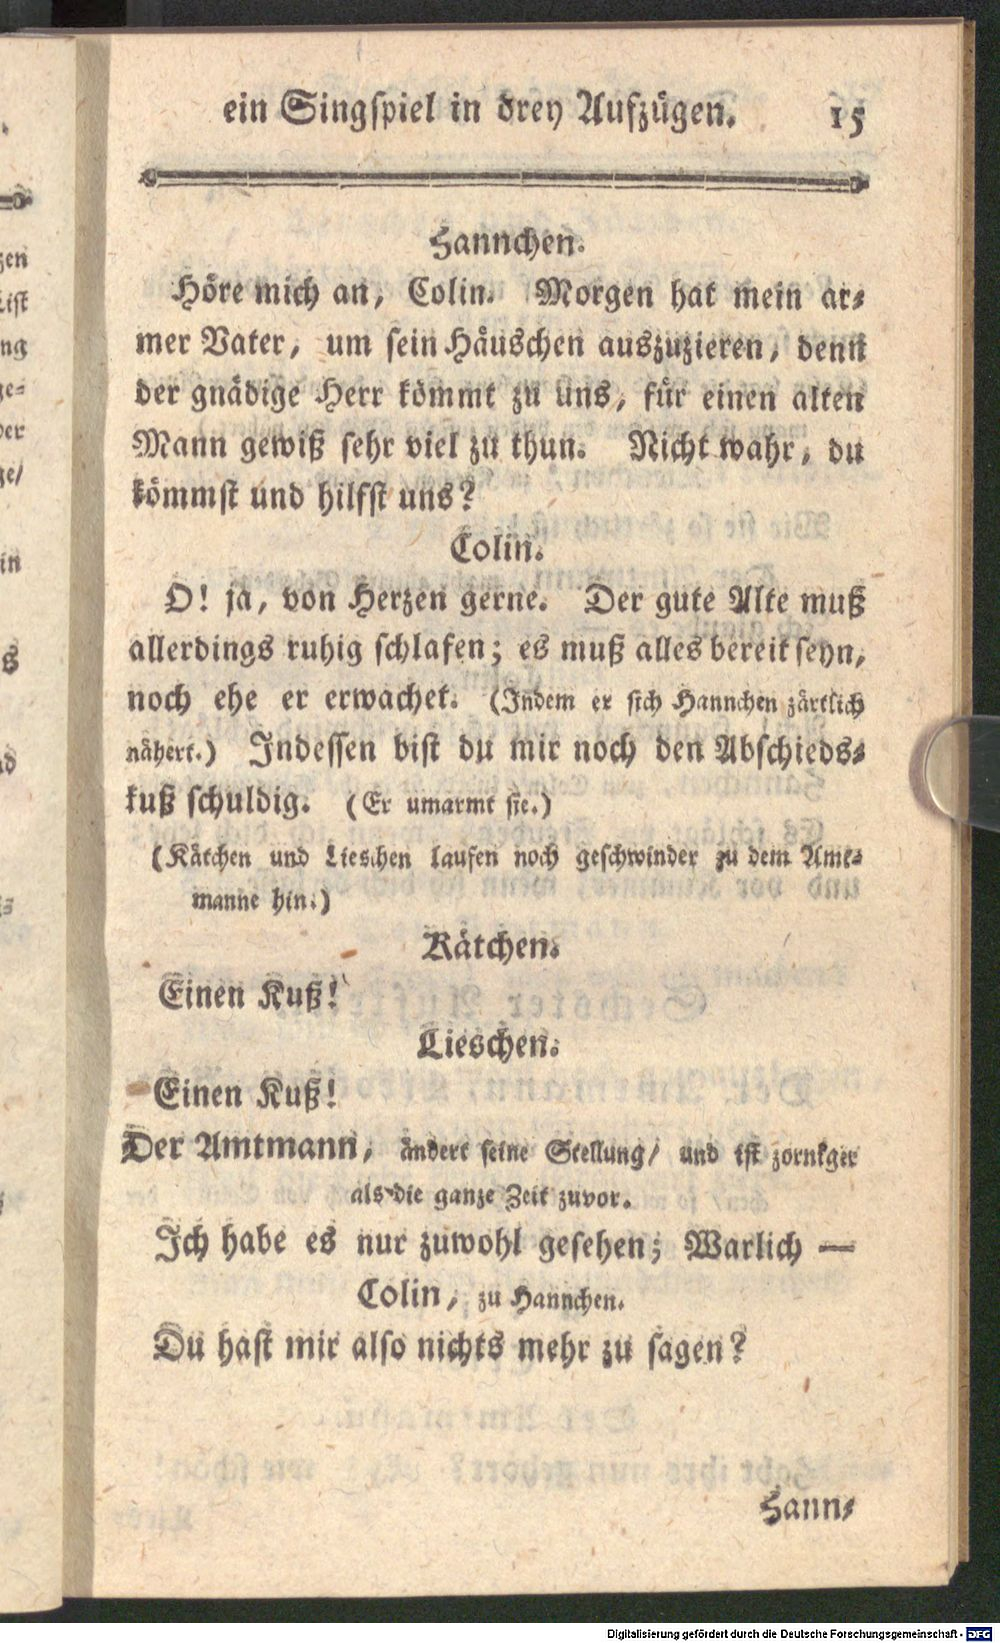 ein Singſpiel in drey Aufzügen. 15
Hannchen.
Höre mich an, Colin. Morgen hat mein ar⸗
mer Vater, um ſein Häuschen auszuzieren, denn
der gnädige Herr kömmt zu uns, für einen alten
Mann gewiß ſehr viel zu thun. Nicht wahr, du
kömmſt und hilfſt uns?
Colin.
O! ja, von Herzen gerne. Der gute Alte muß
allerdings ruhig ſchlafen; es muß alles bereit ſeyn,
noch ehe er erwachet. (Indem er ſich Hannchen zärtlich
nähert.) Indeſſen biſt du mir noch den Abſchieds⸗
kuß ſchuldig. (Er umarmt ſie.)
(Kätchen und Lieschen laufen noch geſchwinder zu dem Amt⸗
manne hin.)
Kätchen.
Einen Kuß!
Lieschen.
Einen Kuß!
Der Amtmann, ändert ſeine Stellung/ und iſt zorniger
als die ganze Zeit zuvor.
Ich habe es nur zuwohl geſehen; Warlich —
Colin, zu Hannchen.
Du haſt mir alſo nichts mehr zu ſagen?
Hann⸗
Digitalisierung gefördert durch die Deutsche Forschungsgemeinschaft - DFG